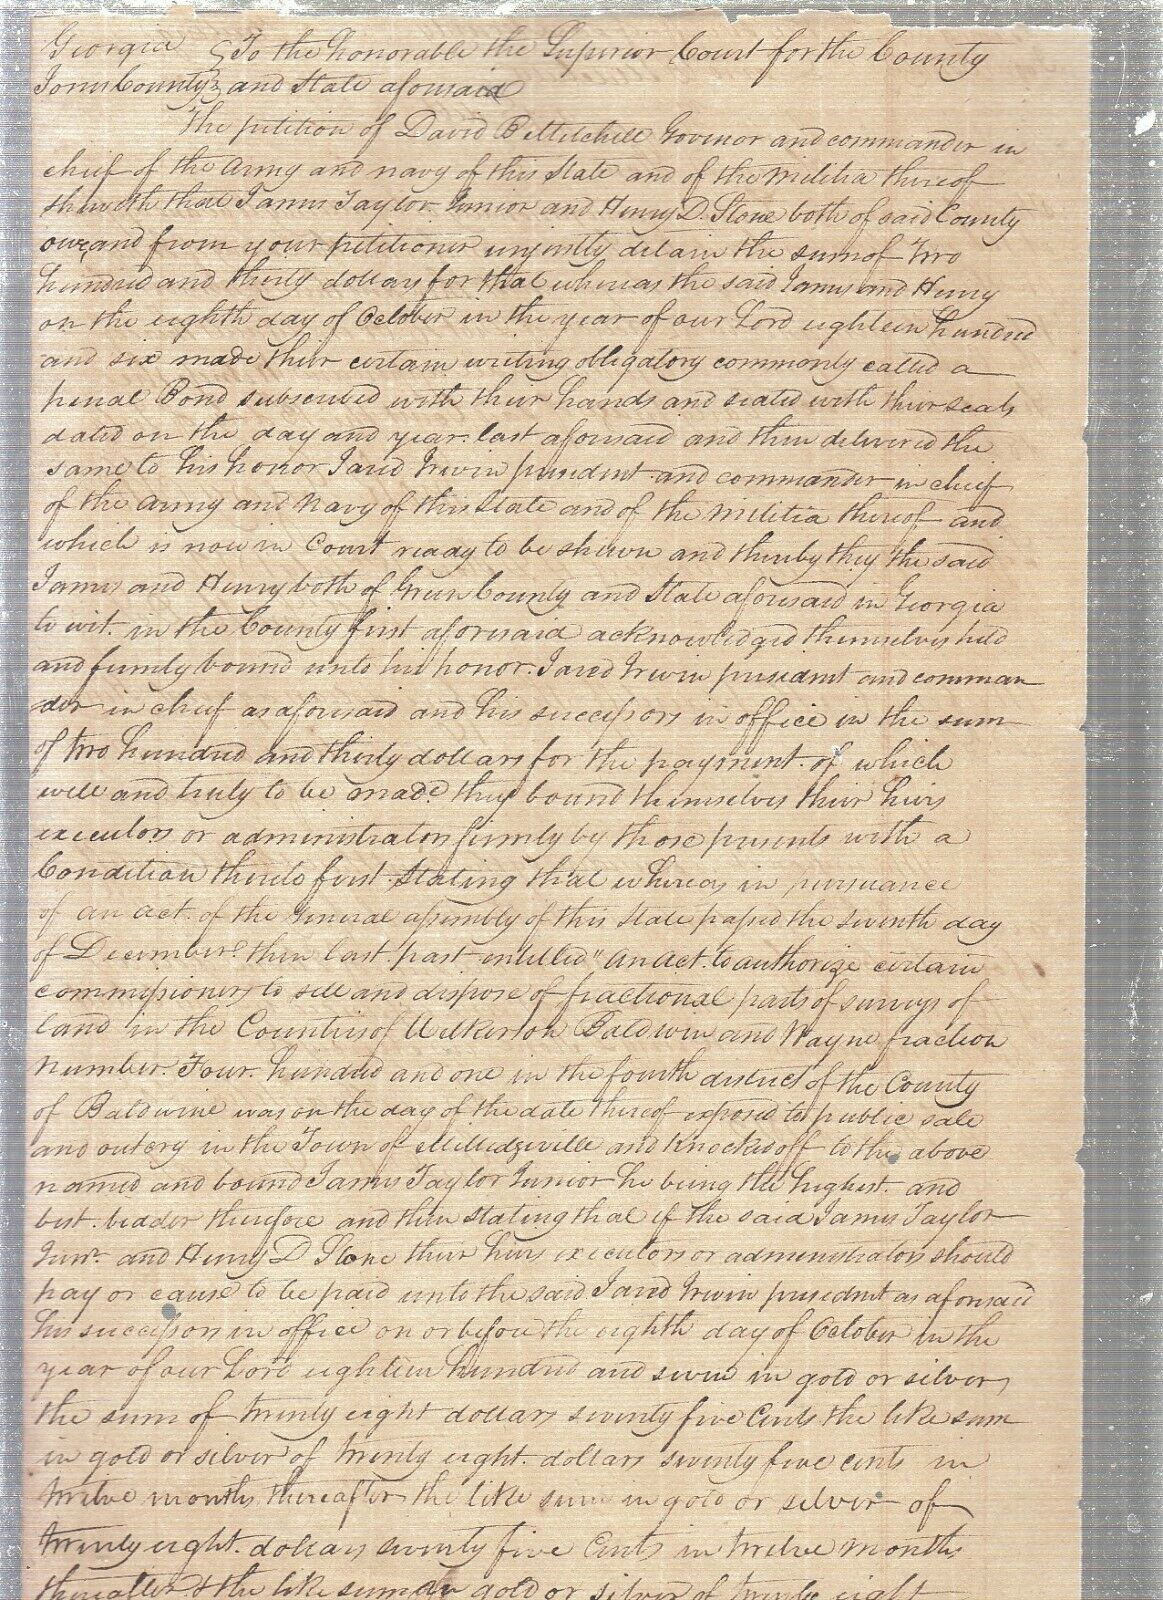 Georgia } To the Honorable the Superior Court for the County
Jones County } and State aforesaid
The petition of David B Mitchell Govenor and commander in
chief of the army and navy of this State and of the militia thereof
sheweth that James Taylor Junior and Henry D. Stone both of said County
owe and from your petitioner unjustly detain the sum of Two
hundred and thirty dollars for that whereas the said James and Henry
on the eighth day of October in the year of our Lord eighteen hundred
and six made their certain writing obligatory commonly called a
penal Bond subscribed with their hands and sealed with their seals
dated on the day and year last aforesaid and then delivered the
same to his honor Jared Irwin president and commander in chief
of the army and navy of this State and of the militia thereof and
which is now in Court ready to be shewn and thereby they the said
James and Henry both of Green County and State aforesaid in Georgia
to wit. in the County first aforesaid acknowledged themselves held
and firmly bound unto his honor. Jared Irwin president and comman
der in chief as aforesaid and his successors in office in the sum
of two hundred and thirty dollars for the payment. of which
well and truly to be made they bound themselves their heirs
executors or administrators firmly by those presents with a
Condition thereto first stating that whereas in pursuance
of an act. of the General assembly of this State passed the seventh day
of December then last. past entitled "an act. to authorize certain
commissioners to sell and dispose of fractional parts of surveys of
land in the Counties of Wilkerson Baldwin and Wayne fraction
number. Four. hundred and one in the fourth district of the County
of Baldwine was on the day of the date thereof exposed to public sale
and outcry in the Town of Milledgeville and knocked off to the above
named and bound James Taylor Junior he being the highest. and
best. bidder therefore and then stating that if the said James Taylor
Junr. and Henry D Stone their heirs executors or administrators should
pay or cause to be paid unto the said Jared Irwin president as aforesaid
his successors in office on or before the eighth day of October in the
year of our Lord eighteen hundred and seven in gold or silver
the sum of twenty eight dollars seventy five Cents the like sum
in gold or silver of twenty eight. dollars seventy five cents in
twelve months thereafter the like sum in gold or silver of
twenty eight. dollars seventy five Cents in twelve months
thereafter & the like sum in gold or silver of twenty eight